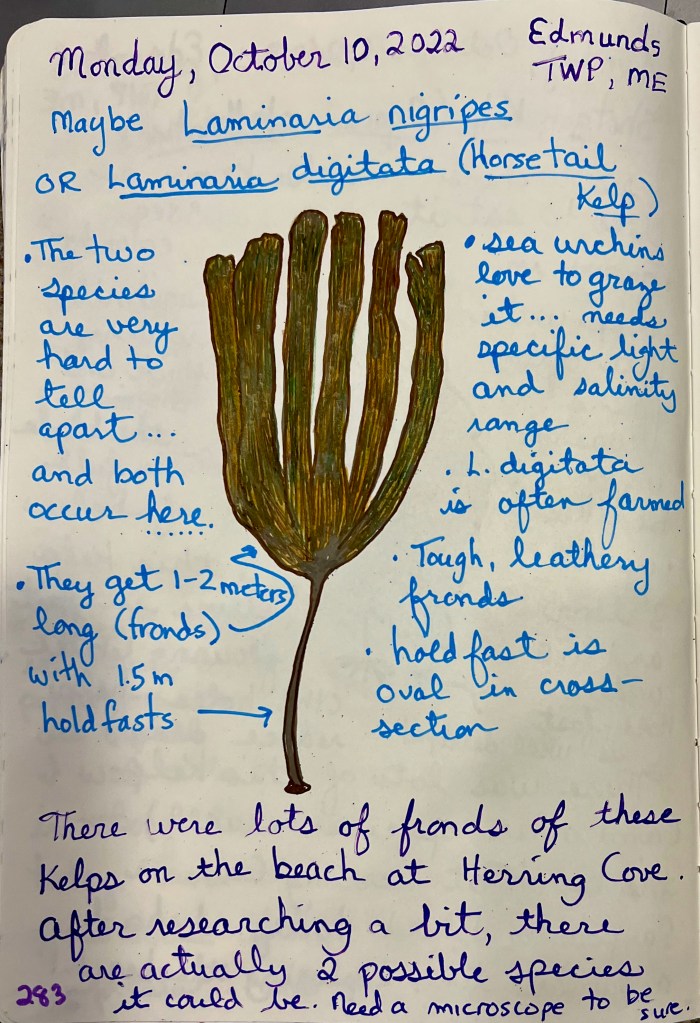 Monday, October 10, 2022
Edmunds
TWP, ME
Maybe Laminaria nigripes
OR Laminaria digitata (Horsetail
Kelp)
• The two
species
are very
hard to
tell
apart...
and both
occur here.
• They get 1-2 meters
long (fronds)
with 1.5 m
holdfasts
• sea urchins
love to graze
it... needs
specific light
and salinity
range
• L. digitata
is often farmed
• Tough, leathery
fronds
• holdfast is
oval in cross-
section
There were lots of fronds of these
Kelps on the beach at Herring Cove.
After researching a bit, there
are actually 2 possible species
it could be. Need a microscope to be
sure.
283